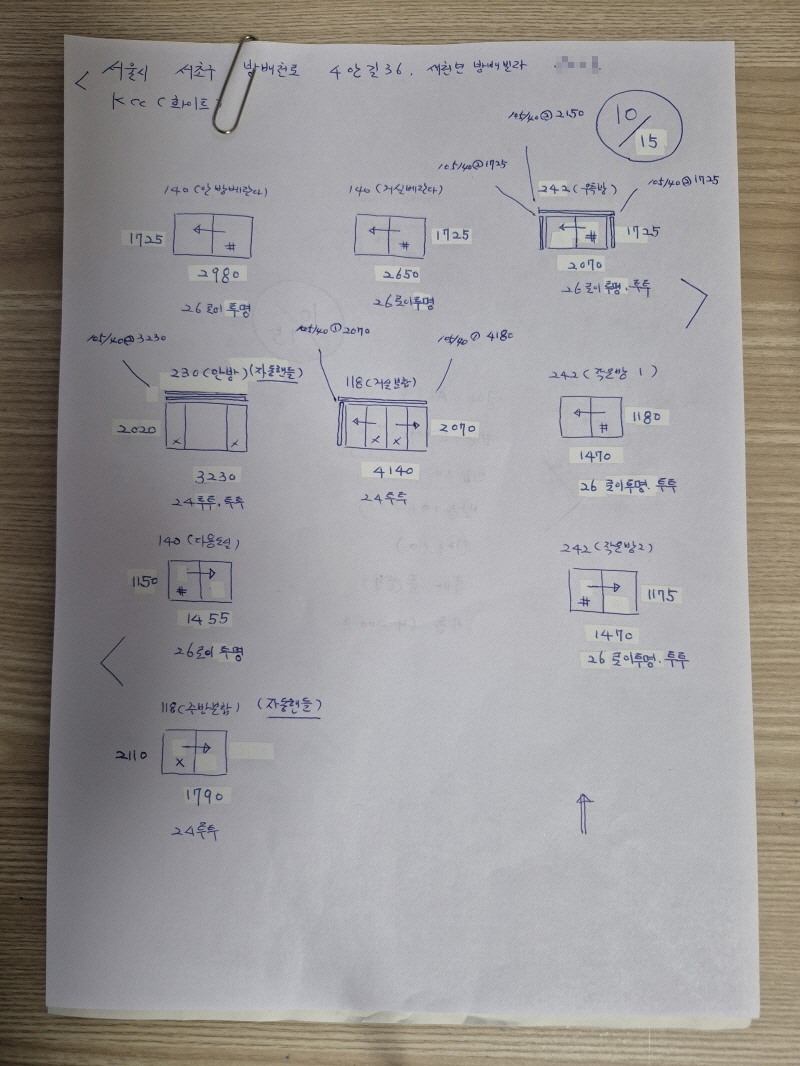 서울시 서초구 방배천로 4안길 36, 새천년 방배빌라
KCC (화이트)
10/15
140 (안방베란다)
1725
#
2980
26로이 투명
140 (거실베란다)
1725
#
2650
26로이 투명
105/40 ② 2150
105/40 ② 1725
105/40 ② 1725
1725
#
2070
26로이 투명. 투투
105/40 ② 3230
230 (안방) (자동핸들)
2020
x x
3230
24투투. 투투
105/40 ① 2070
105/40 ① 4180
118 (거실분합)
2070
x x
4140
24투투
242 (작은방 1)
1180
#
1470
26 로이투명. 투투
140 (다용도실)
1150
#
1455
26로이 투명
242 (작은방2)
1175
#
1470
26 로이투명. 투투
118 (주방분합) (자동핸들)
2110
x
1790
24투투